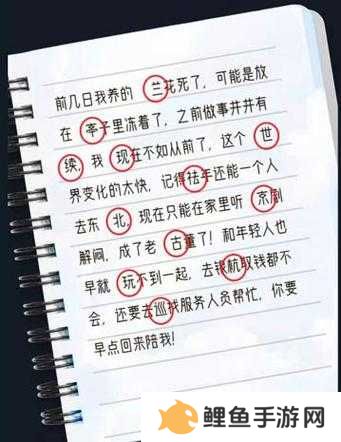 前几日我养的 兰花死了，可能是放
在 亭子里冻着了，之前做事井井有
续，我 现在不如从前了，这个 世
界变化的太快，记得祛年还能一个人
去东 北，现在只能在家里听 京剧
解闷，成了老 古董了！和年轻人也
早就 玩不到一起，去银杭取钱都不
会，还要去巡找服务人员帮忙，你要
早点回来陪我！
鲤鱼手游网